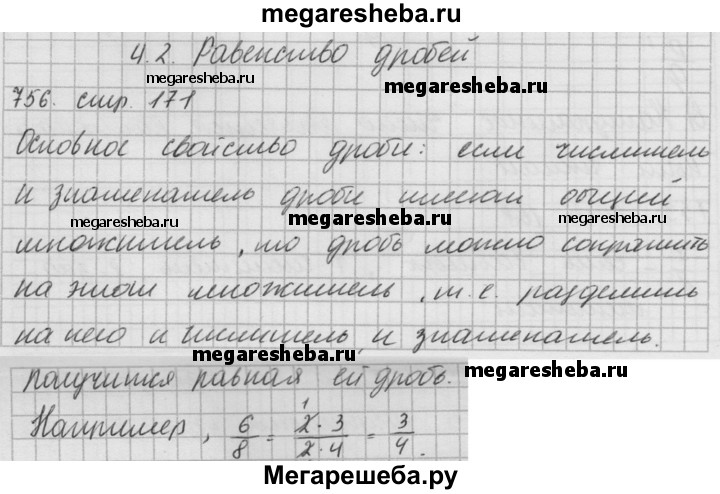 megaresheba.ru
4.2. Равенство дробей
megaresheba.ru
megaresheba.ru
756. стр. 171
Основное свойство дроби: если числитель
и знаменатель дроби имеют общий
megaresheba.ru
megaresheba.ru
megaresheba.ru
множитель, то дробь можно сократить
на этот множитель, т.е. разделить
на него и числитель, и знаменатель.
megaresheba.ru
получится равная ей дробь.
megaresheba.ru
Например, 6/8 = 2·3/2·4 = 3/4.
1
Мегарешеба.ру